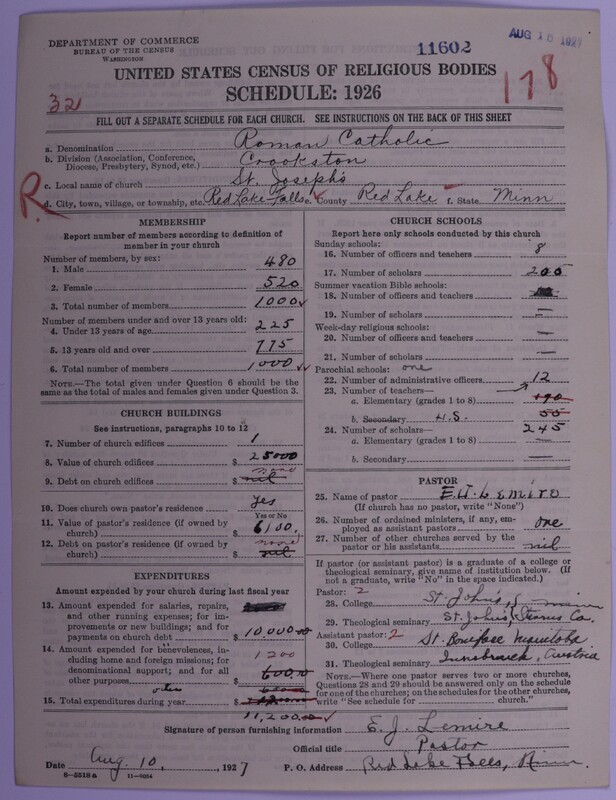 DEPARTMENT OF COMMERCE
BUREAU OF THE CENSUS
WASHINGTON
11602
AUG 18 1927
UNITED STATES CENSUS OF RELIGIOUS BODIES
SCHEDULE: 1926
321
178
FILL OUT A SEPARATE SCHEDULE FOR EACH CHURCH. SEE INSTRUCTIONS ON THE BACK OF THIS SHEET
a. Denomination Roman Catholic
b. Division (Association, Conference, Diocese, Presbytery, Synod, etc.) Crookston
c. Local name of church St. Joseph's
R
d. City, town, village, or township, etc. Red Lake Falls e. County Red Lake f. State Minn
MEMBERSHIP
Report number of members according to definition of
member in your church
Number of members, by sex:
1. Male 480
2. Female 520
3. Total number of members 1000
Number of members under and over 13 years old:
4. Under 13 years of age 225
5. 13 years old and over 775
6. Total number of members 1000
NOTE.—The total given under Question 6 should be
same as the total of males and females given under Question 3.
CHURCH BUILDINGS
See instructions, paragraphs 10 to 12
7. Number of church edifices 1
8. Value of church edifices $ 25000
9. Debt on church edifices $ nil none
10. Does church own pastor's residence? Yes
Yes or No
11. Value of pastor's residence (if owned by
church) $ 6100.
12. Debt on pastor's residence (if owned by
church) $ nil none
EXPENDITURES
Amount expended by your church during last fiscal year
13. Amount expended for salaries, repairs,
and other running expenses; for im-
provements or new buildings; and for
payments on church debt $ 10,000
14. Amount expended for benevolences, in-
cluding home and foreign missions; for
denominational support; and for all
other purposes $ 1200
600.00
15. Total expenditures during year $
11,200.00
CHURCH SCHOOLS
Report here only schools conducted by this church
Sunday schools:
16. Number of officers and teachers 8
17. Number of scholars 205
Summer vacation Bible schools:
18. Number of officers and teachers
19. Number of scholars —
Week-day religious schools:
20. Number of officers and teachers —
21. Number of scholars —
Parochial schools: one
22. Number of administrative officers 12
23. Number of teachers—
a. Elementary (grades 1 to 8) 190
b. Secondary H.S. 55
24. Number of scholars— 245
a. Elementary (grades 1 to 8) —
b. Secondary —
PASTOR
25. Name of pastor E. J. Lemire
(If church has no pastor, write "None")
26. Number of ordained ministers, if any, em-
ployed as assistant pastors one
27. Number of other churches served by the
pastor or his assistants nil
If pastor (or assistant pastor) is a graduate of a college or
theological seminary, give name of institution below. (If
not a graduate, write "No" in the space indicated.)
Pastor: 2
28. College St. John's, Minn
29. Theological seminary St. Johns, Stearns Co.
Assistant pastor: 2
30. College St. Boniface Manitoba
31. Theological seminary Innsbruck, Austria
NOTE.—Where one pastor serves two or more churches,
Questions 28 and 29 should be answered only on the schedule
for one of the churches; on the schedules for the other churches,
write "See schedule for church."
Signature of person furnishing information E. J. Lemire
Official title Pastor
Date Aug. 10, , 1927 P. O. Address Red Lake Falls, Minn.
6—5518 a 11—9034